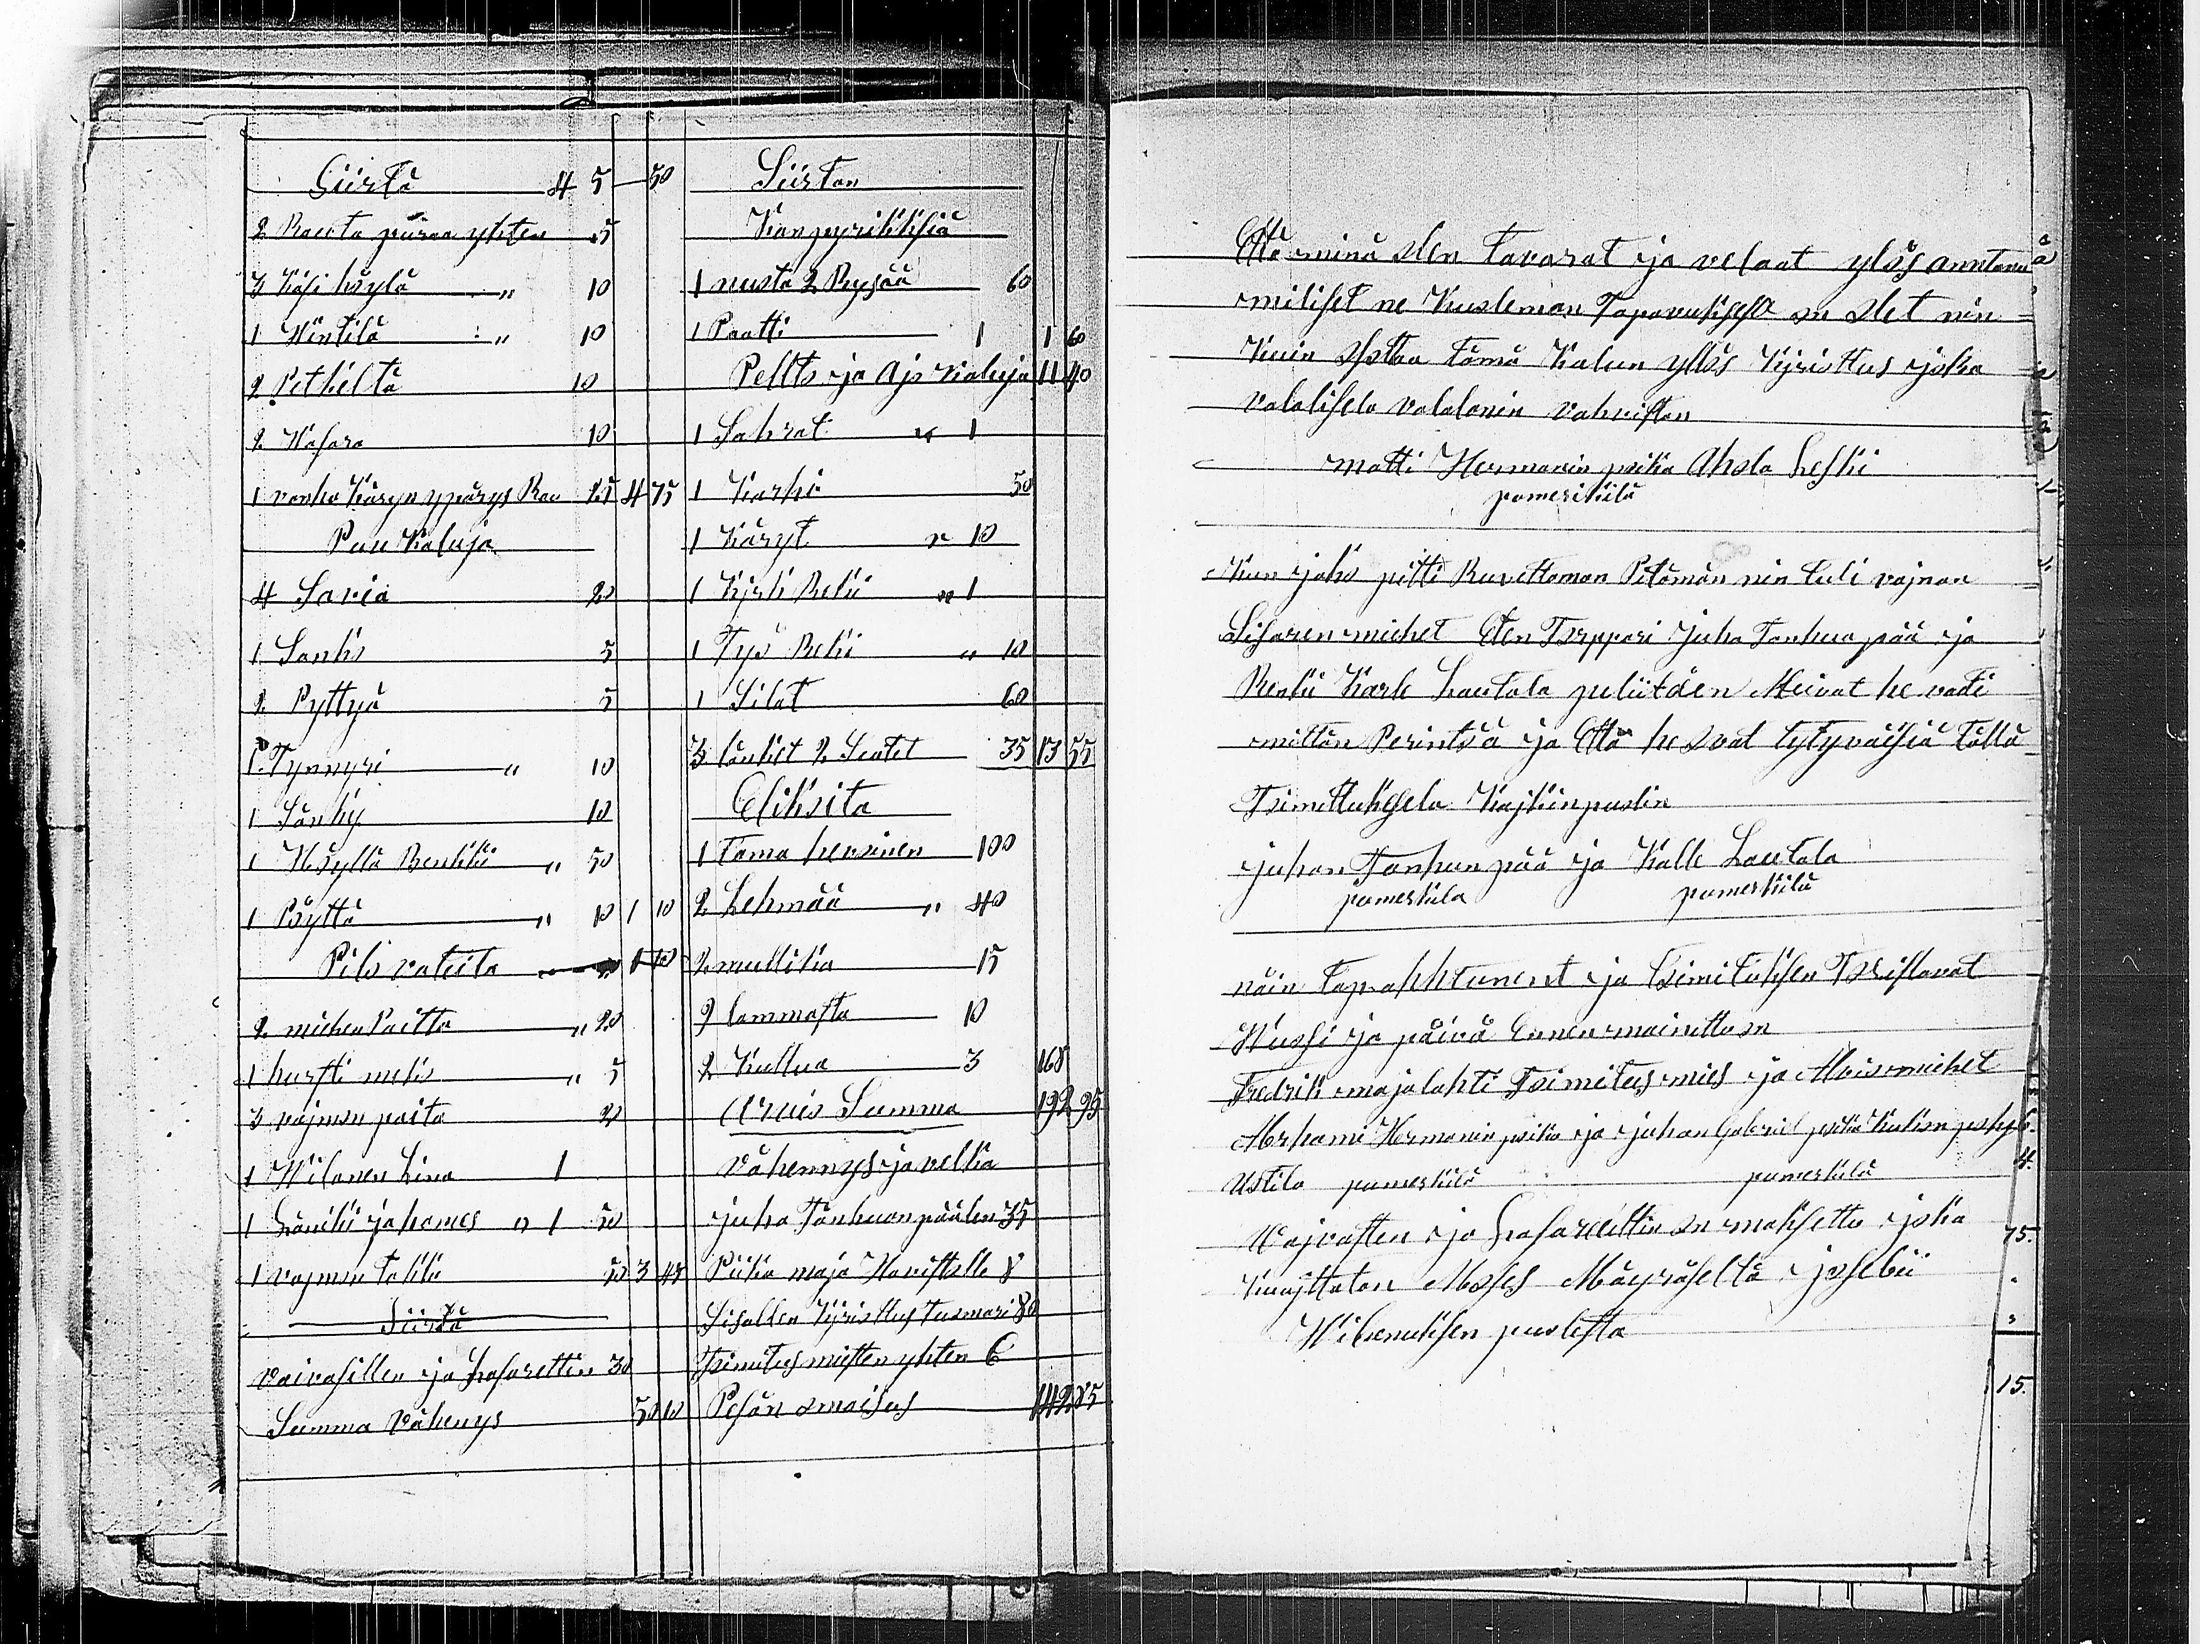 Siirtä 4 5 50
2 Rauta piiraa yhten 5
3 Käsi höylä " 10
1 Wintilä " 10
2 Petkeltä 10
2 Wasara 10
1 vanha Käryn ypärys Rau 25 4 75
Puu Kaluja
4 Savia 20
1 Sanko 5
2 Pyttyä 5
1 Tynnyri " 10
1 Sänky 10
1 Höyllä Penkki " 50
1 Pöyttä " 10 1 10
Pito vateita 1 10
2 miehen Paitta " 20
1 hursti mekko " 5
3 vajmon paita 2
1 Wilanen Lina 1
1 Länikki ja hames " 1 50
1 vajmon takki 50 3 48
Siirtä
Vaivasillen ja Lasarettin 30
Summa Vähenys 50 10
Siirtan
Kanpyrikkisiä
1 nuota 2 Rysää 60
1 Paatti 1 1 60
Pellto ja Ajo Kaluja 11 40
1 Sahrat " 1
1 Karhi 50
1 Käryt " 10
1 Kirk Reki " 1
1 Työ Reki " 10
1 Silat 60
3 länket 2 Suitet 35 13 55
Eliksita
1 Tama hevoinen 100
2 Lehmää " 40
2 mullikia 15
2 lammasta 10
2 Kullua 3 168
Arvio Summa 192 95
Vähennys ja velkia
juha Tanhuanpäälen 35
Piika maja Haristolle 8
Sisallen Kirioittus Tuomari 80
Toimitus miesten yhten 6
Pesän omaisus 142 85
Että minä olen Tavarat ja velaat ylös anntanu
miliset ne Kuoleman Tapauksesta on olet nin
Kuin osotaa tämä Kalun yllös Kirioittus joka
valalisela valalanin vahvistan
matti Hermanin poika Ahola Leski
pumerkkilä
Kun joko pitti Ruvettaman Pitämän nin tuli vajnaan
Sisaren miehet Eten Torppari juha Tanhua pää ja
Renki Karle Lautala puliitden Meivat he vadi
mittän Perintöä ja Että he ovat tytyväisiä tällä
Toimittuksela Kajkinpuolin
juhan Tanhuan pää ja Kalle Lautala
pumerkkila pumerkkilä
näin Tapahhtunent ja toimituksen Toristavat
Wuosi ja päivä Ennen mainittu on
Fredrik majalahti Toimitus mies ja Arviomiehet
Abrhami Hermanin poika ja juhan Gabriel poika
Ustila pumerkkilä pumerkkilä
Wajvasten ja Lasarettin on maksettu joka
Kuijttatan Moses Mäyräseltä josebii
Wihmuksen puolesta
75.
15.